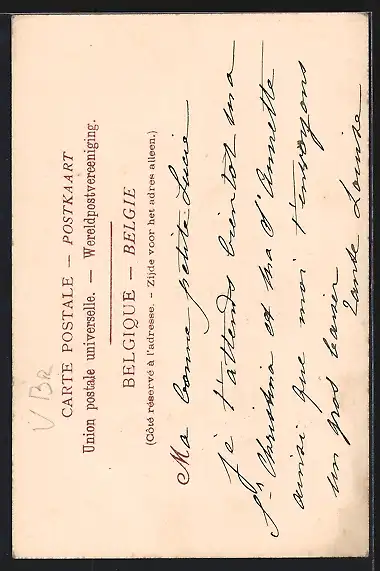 V Br
CARTE POSTALE — POSTKAART
Union postale universelle. — Wereldpostvereeniging.
BELGIQUE — BELGIE
(Côté réservé à l'adresse. - Zijde voor het adres alleen.)
Ma bonne petite Lucie
Je t'attends bientot ma
Christina et ma d'Annette
ainsi que moi t'envoyons
un gros baiser
Tante Louise